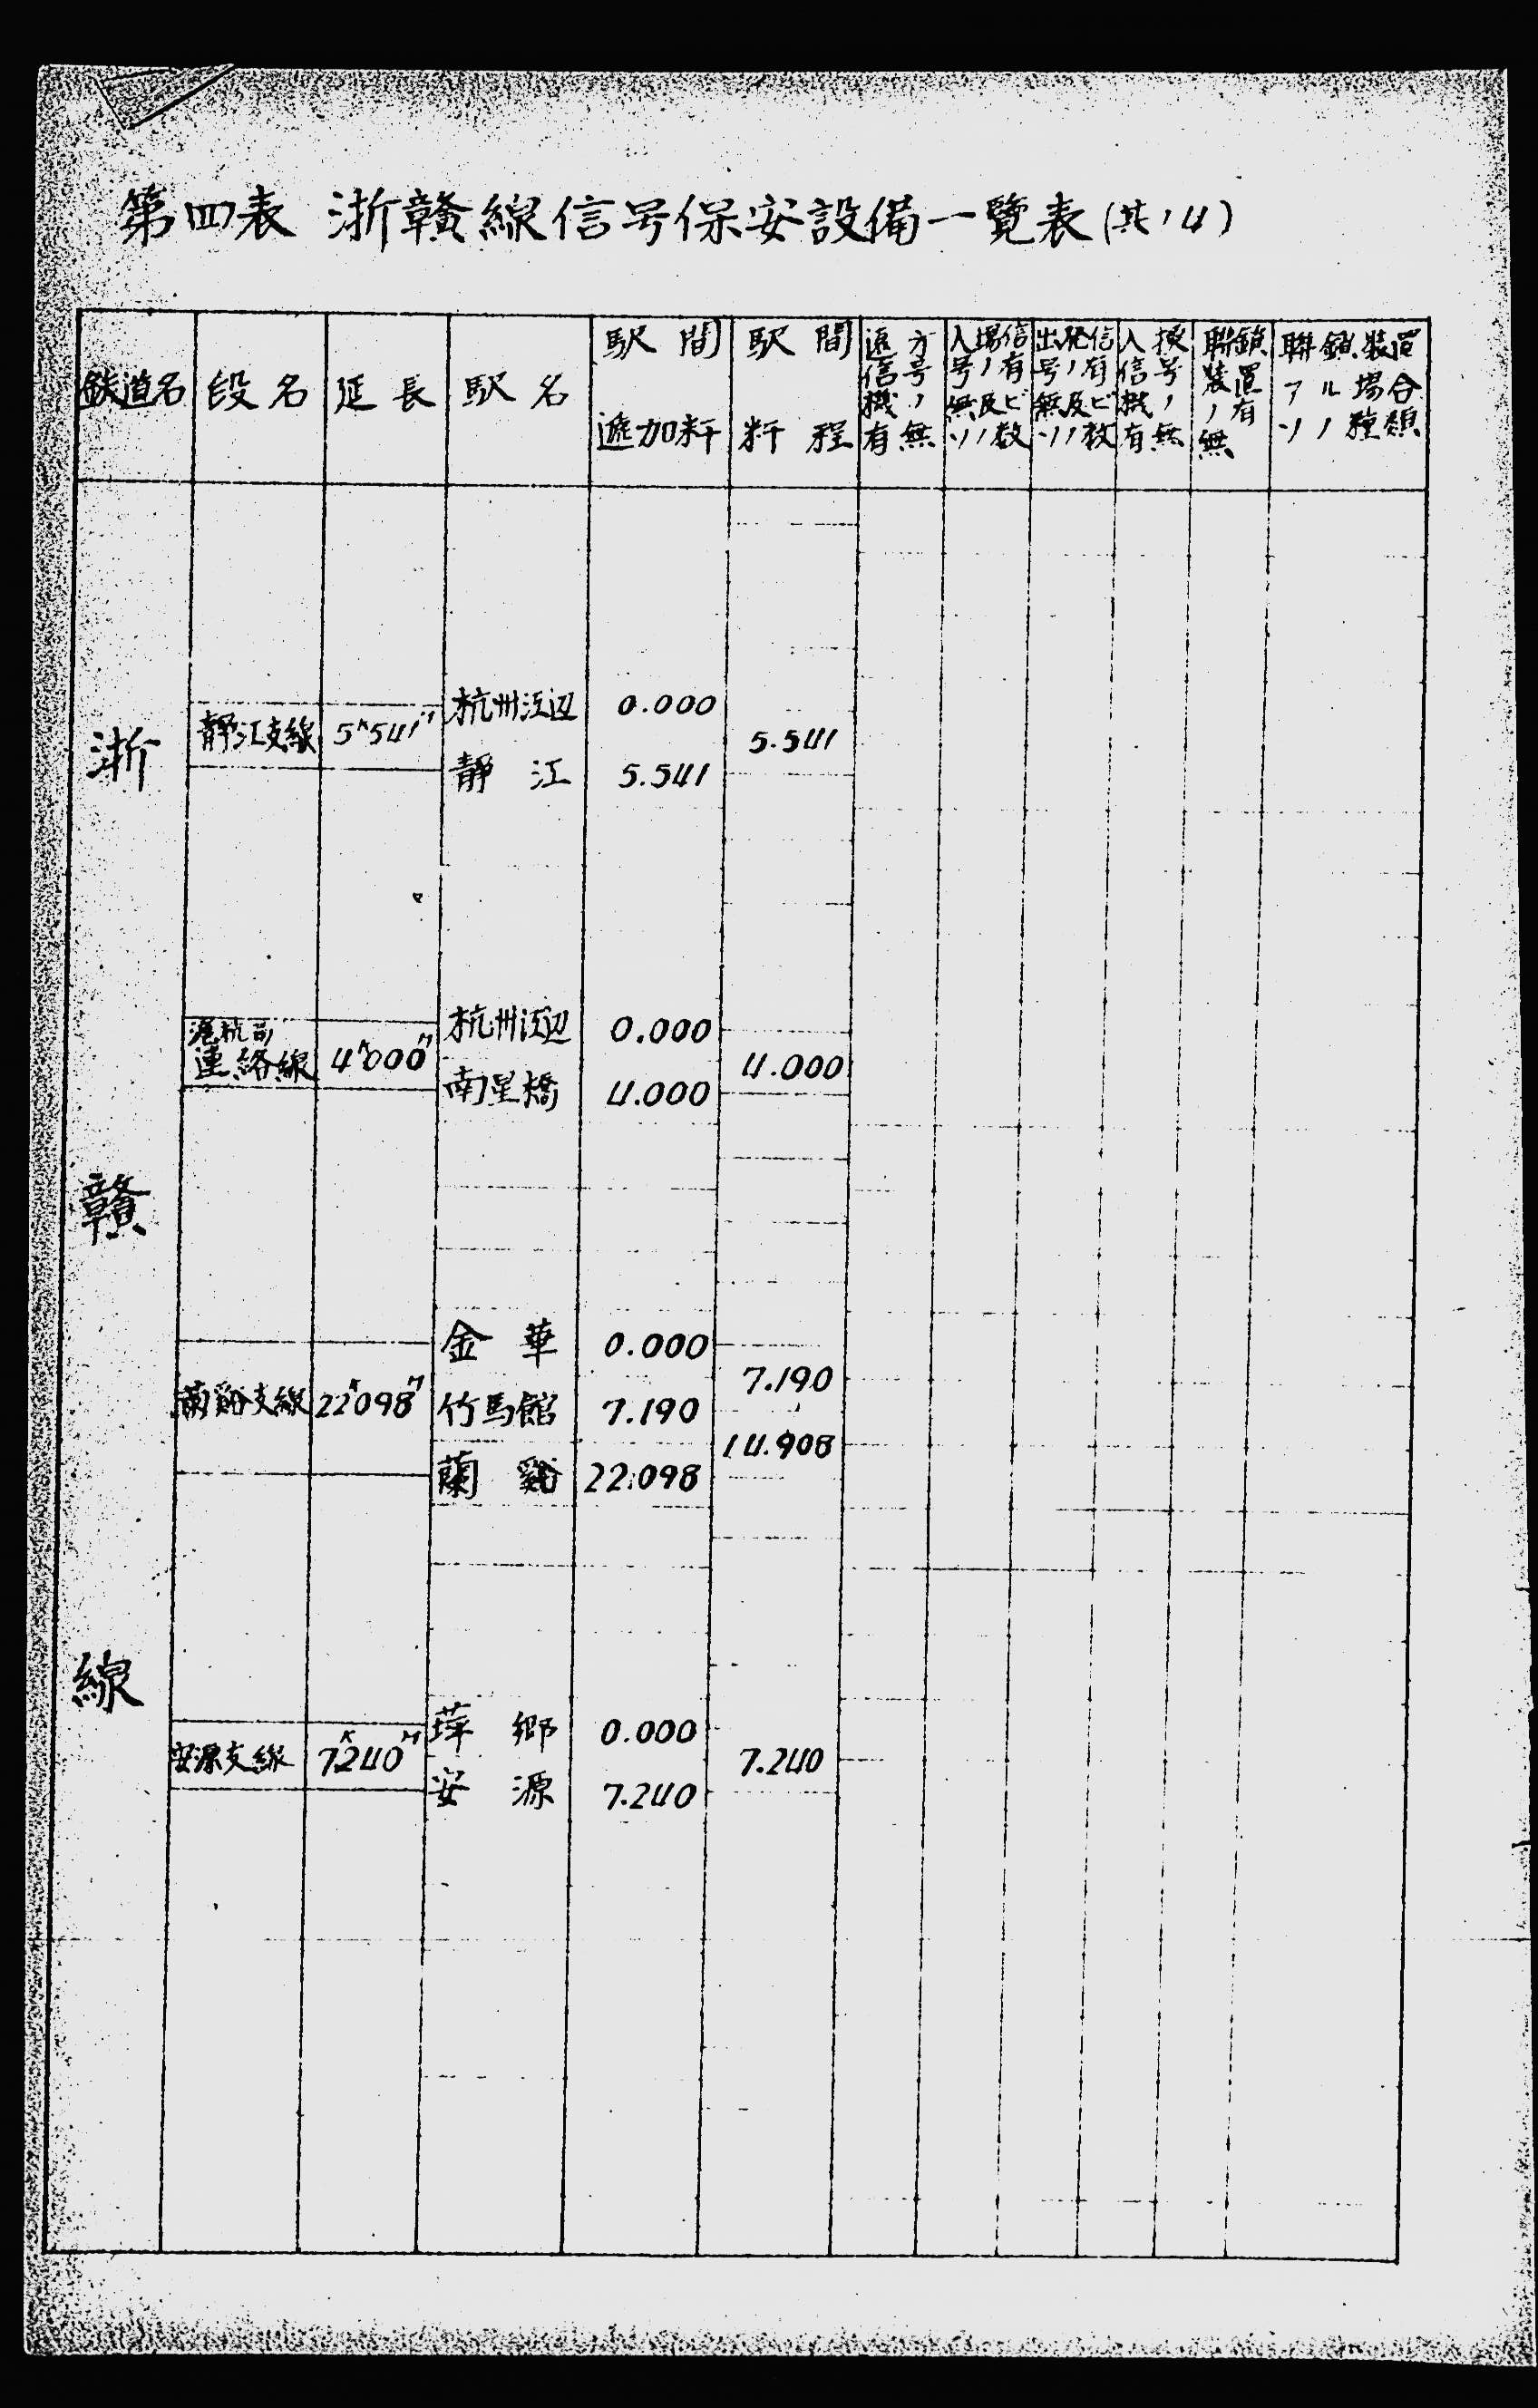 第四表 浙贛線信号保安設備一覧表(其ノ4)
鉄道名 段名 延長 駅名 駅間逓加粁 駅間粁程 遠方信号機ノ有無 入場信号ノ有無及ビソノ数 出発信号ノ有無及ビソノ数 入換信号機ノ有無 聯鎖装置ノ有無 聯鎖装置アル場合ソノ種類
浙贛線
静江支線 5K541M 杭州江辺 0.000
5.541
静江 5.541
滬杭甬連絡線 4K000M 杭州江辺 0.000
4.000
南星橋 4.000
金華 0.000
7.190
蘭谿支線 22K098M 竹馬館 7.190
14.908
蘭谿 22.098
萍郷 0.000
安源支線 7K240M 7.240
安源 7.240